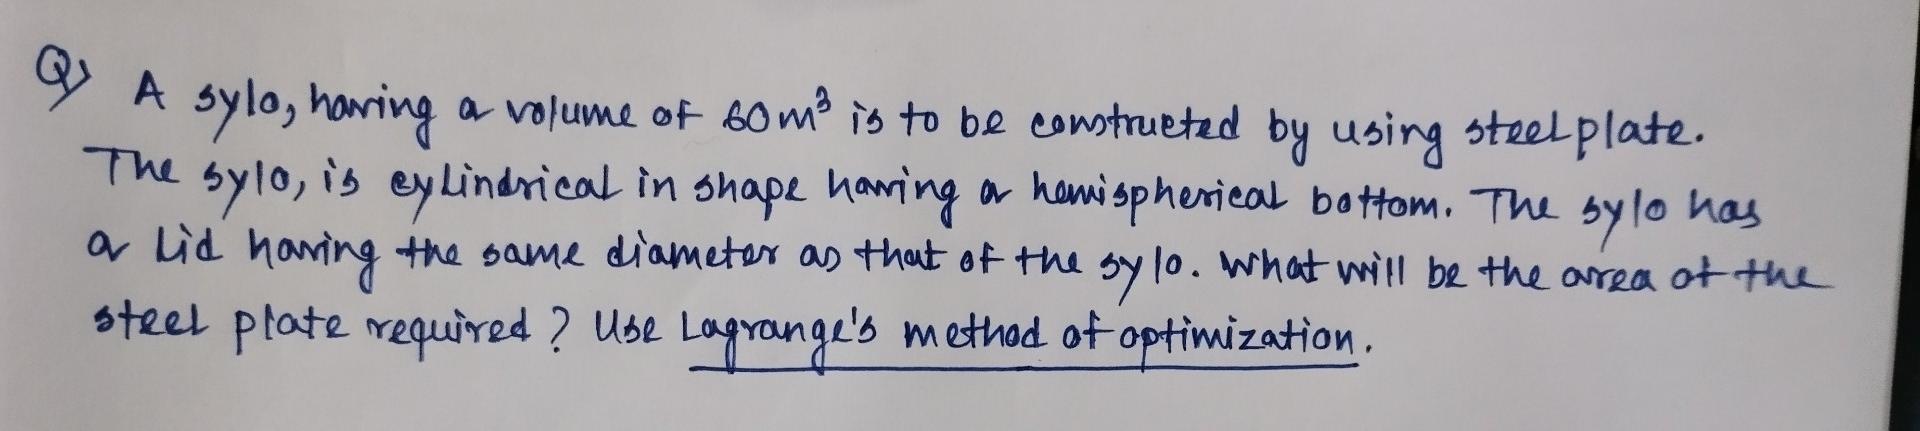 Q) A sylo, having a volume of 60m³ is to be constructed by using steel plate.
The sylo, is cylindrical in shape having a hemispherical bottom. The sylo has
a lid having the same diameter as that of the sylo. What will be the area of the
steel plate required? Use Lagrange's method of optimization.